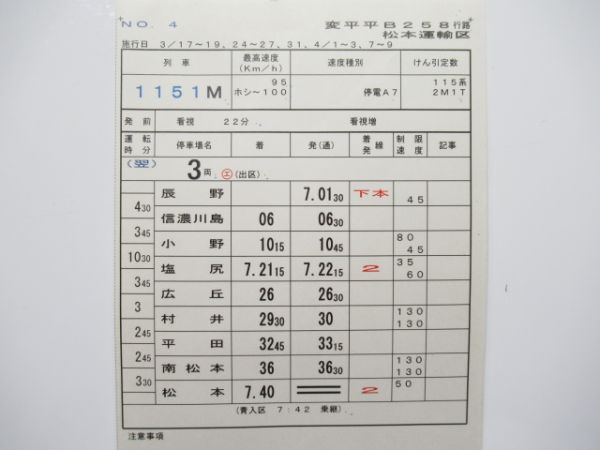 NO. 4 変平平B258行路
松本運輸区
施行日 3/17~19、24~27、31、4/1~3、7~9
列車 最高速度(Km/h) 速度種別 けん引定数
1151M 95 ホシ~100 停電A7 115系 2M1T
発前 看視 22分 看視増
運転時分 停車場名 着 発(通) 着発線 制限速度 記事
(翌) 3両 エ(出区)
辰野 7.01 30 下本 45
4 30
信濃川島 06 06 30
3 45
小野 10 15 10 45 80 45
10 30
塩尻 7.21 15 7.22 15 2 35 60
3 45
広丘 26 26 30
3
村井 29 30 30 130 130
2 45
平田 32 45 33 15
2 45
南松本 36 36 30 130 130
3 30
松本 7.40 2 50
(青入区 7:42 乗継)
注意事項